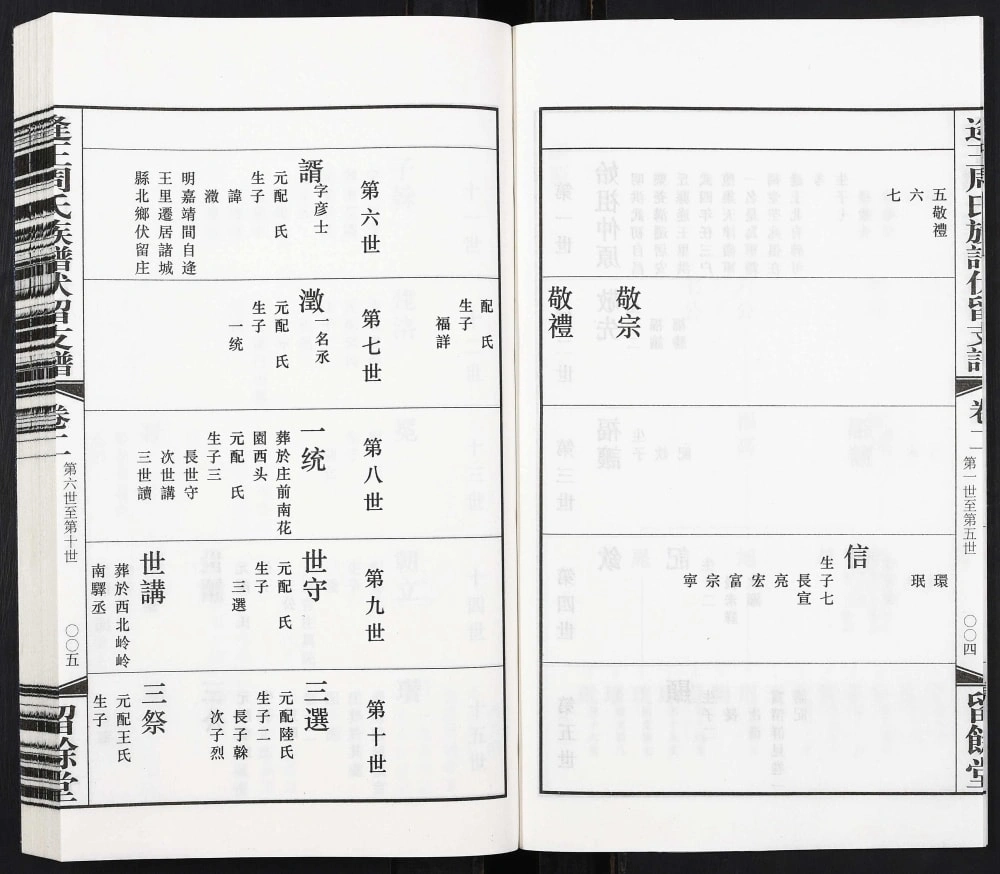 逄王周氏族譜伏留支譜
卷二
第一世至第五世
〇〇四
留餘堂
五敬禮
六
七
敬宗
敬禮
環
珉
信
生子七
長宣
亮
宏
富
宗
寧
配 氏
生子
福詳
第六世
諝
字彦士
元配 氏
生子
諱
澂
明嘉靖間自逄
王里遷居諸城
縣北鄉伏留庄
第七世
澂
一名氶
元配 氏
生子
一统
第八世
一统
葬於庄前南花
園西头
元配 氏
生子三
長世守
次世講
三世讀
第九世
世守
元配 氏
生子
三選
世講
葬於西北岭岭
南驛丞
第十世
三選
元配陸氏
生子二
長子榦
次子烈
三祭
元配王氏
生子
逄王周氏族譜伏留支譜
卷二
第六世至第十世
〇〇五
留餘堂